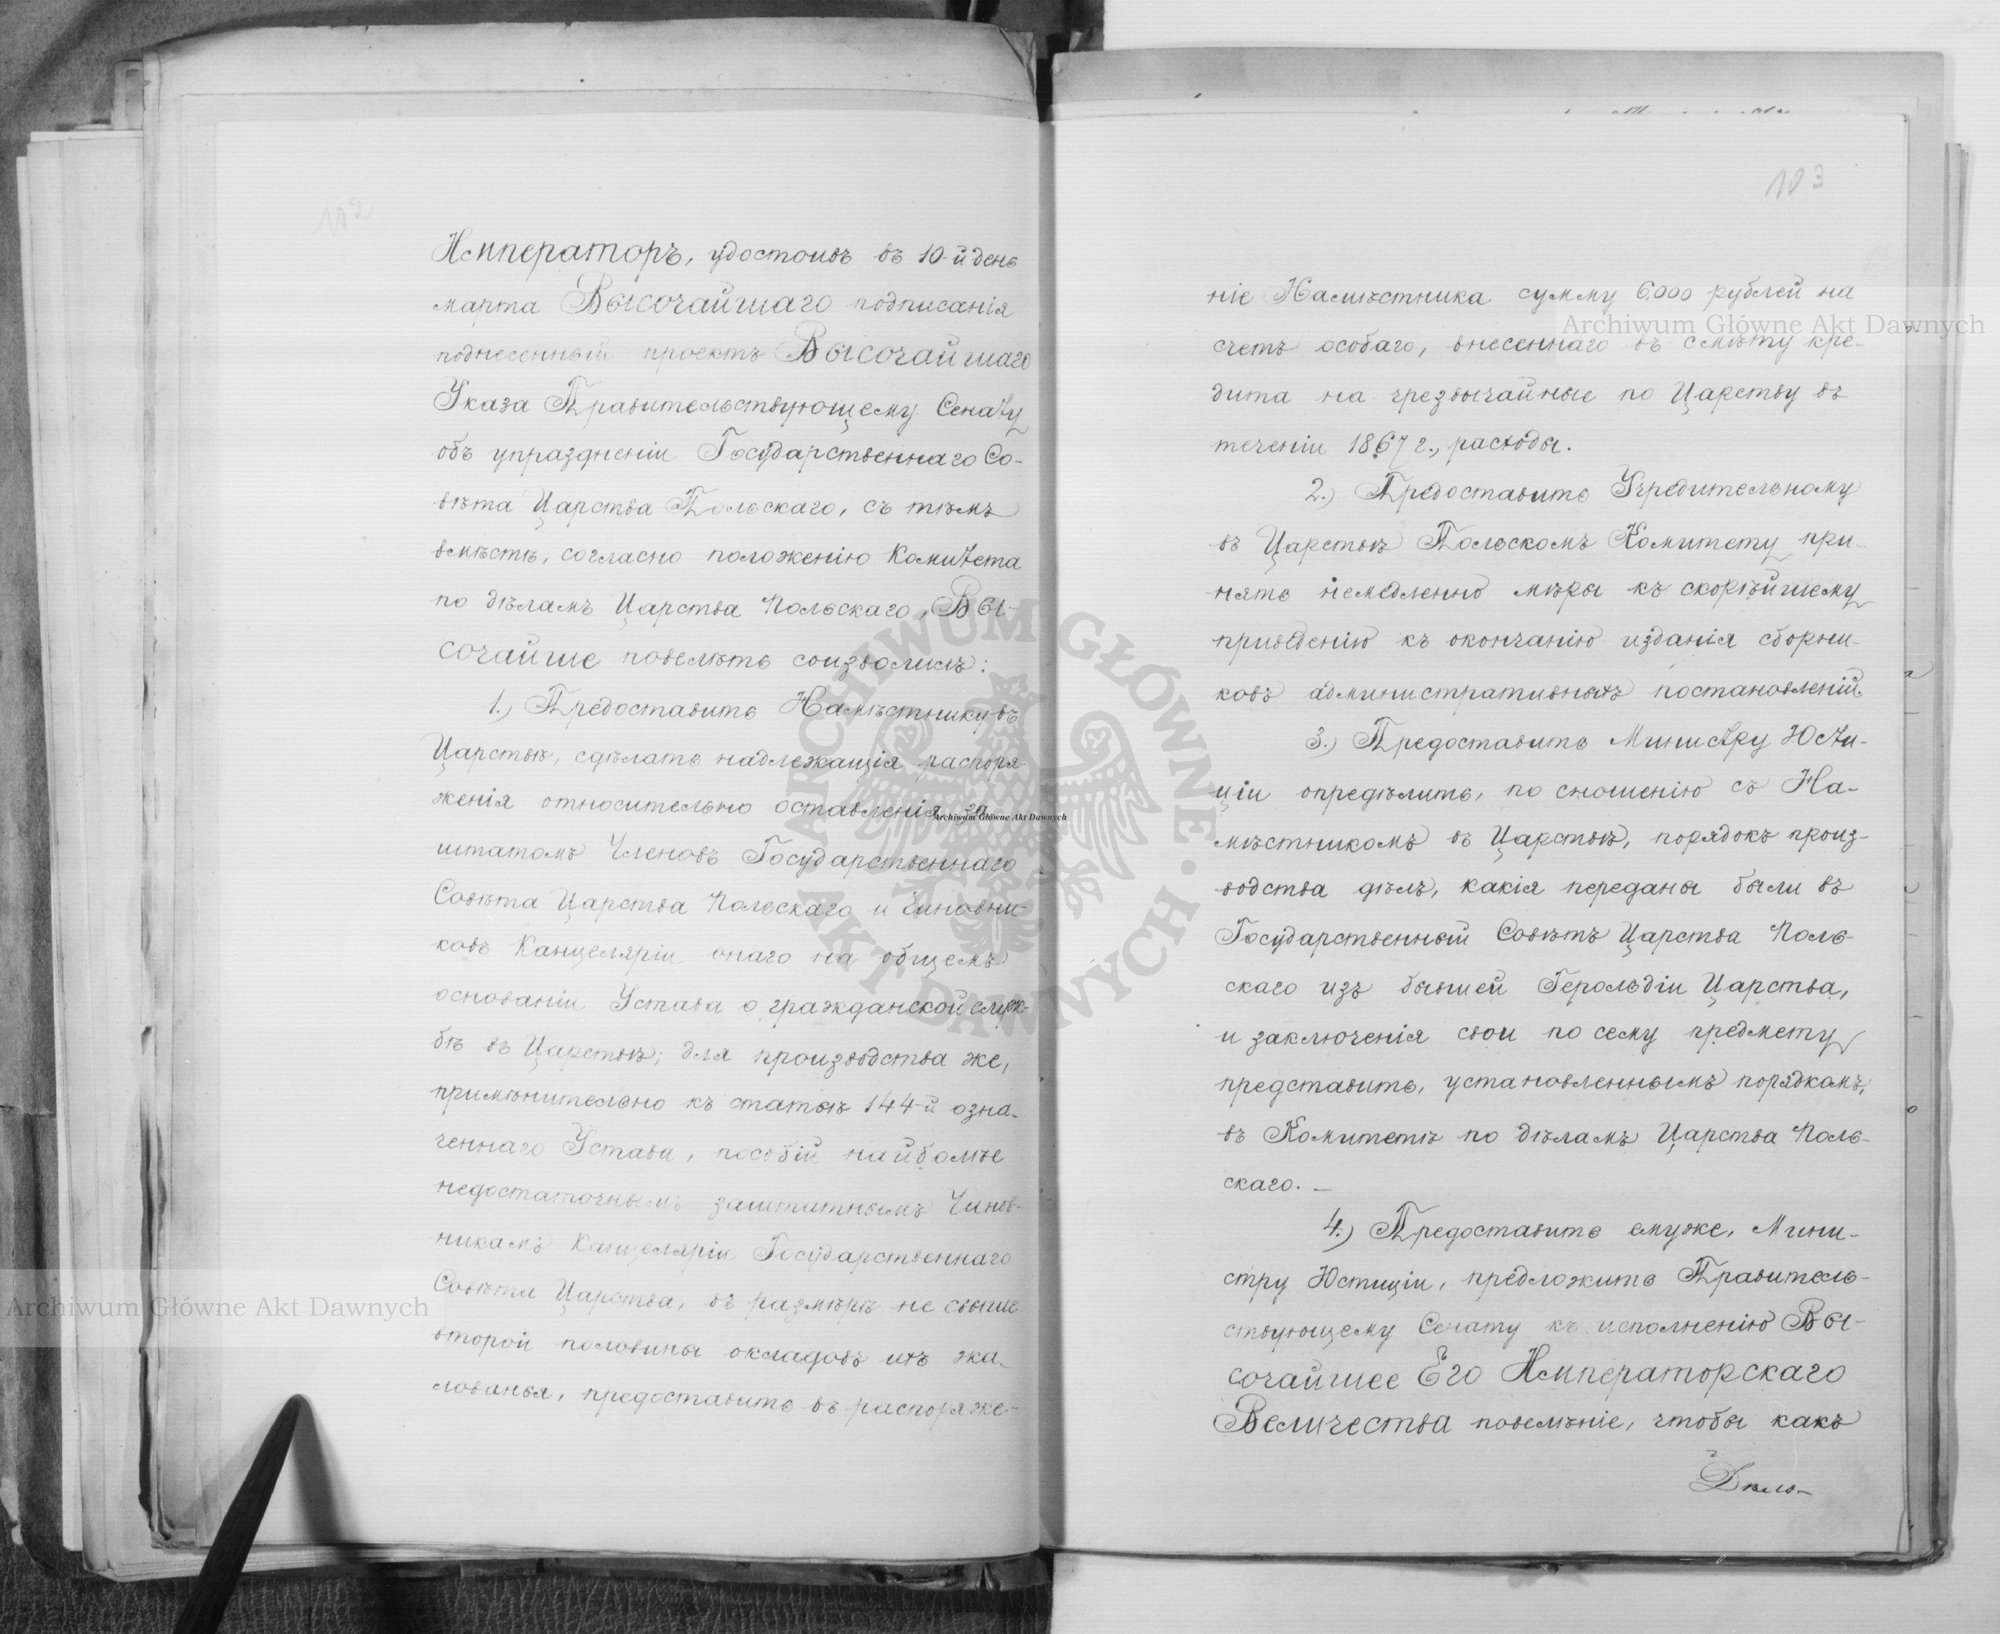 102
Императоръ, удостоивъ въ 10-й день
марта Высочайшаго подписанія
поднесенный проектъ Высочайшаго
Указа Правительствующему Сенату
объ упраздненіи Государственнаго Со-
вѣта Царства Польскаго, съ тѣмъ
вмѣстѣ, согласно положенію Комитета
по дѣламъ Царства Польскаго, Вы-
сочайше повелѣть соизволилъ:
1.) Предоставить Намѣстнику въ
Царствѣ, сдѣлать надлежащія распоря-
женія относительно оставленія за
штатомъ Членовъ Государственнаго
Совѣта Царства Польскаго и Чиновни-
ковъ Канцеляріи онаго на общемъ
основаніи Устава о гражданской служ-
бѣ въ Царствѣ; для производства же,
примѣнительно къ статьѣ 144-й озна-
ченнаго Устава, пособій наиболѣе
недостаточнымъ заштатнымъ Чинов-
никамъ Канцеляріи Государственнаго
Совѣта Царства, въ размѣрѣ не свыше
второй половины окладовъ ихъ жа-
лованья, предоставить въ распоряже-
103
ніе Намѣстника сумму 6.000 рублей на
счетъ особаго, внесеннаго въ смѣту кре-
дита на чрезвычайные по Царству въ
теченіи 1867 г., расходы.
2.) Предоставить Учредительному
въ Царствѣ Польскомъ Комитету при-
нять немедленно мѣры къ скорѣйшему
приведенію къ окончанію изданія сборни-
ковъ административныхъ постановленій.
3.) Предоставить Министру Юсти-
ціи опредѣлить, по сношенію съ На-
мѣстникомъ въ Царствѣ, порядокъ произ-
водства дѣлъ, какія переданы были въ
Государственный Совѣтъ Царства Поль-
скаго изъ бывшей Герольдіи Царства,
и заключенія свои по сему предмету
представить, установленнымъ порядкомъ,
въ Комитетъ по дѣламъ Царства Поль-
скаго. —
4.) Предоставить емуже, Мини-
стру Юстиціи, предложить Правитель-
ствующему Сенату къ исполненію Вы-
сочайшее Его Императорскаго
Величества повелѣніе, чтобы какъ
Дѣло-
Archiwum Główne Akt Dawnych
Archiwum Główne Akt Dawnych
Archiwum Główne Akt Dawnych
ARCHIWUM GŁÓWNE · AKT DAWNYCH ·